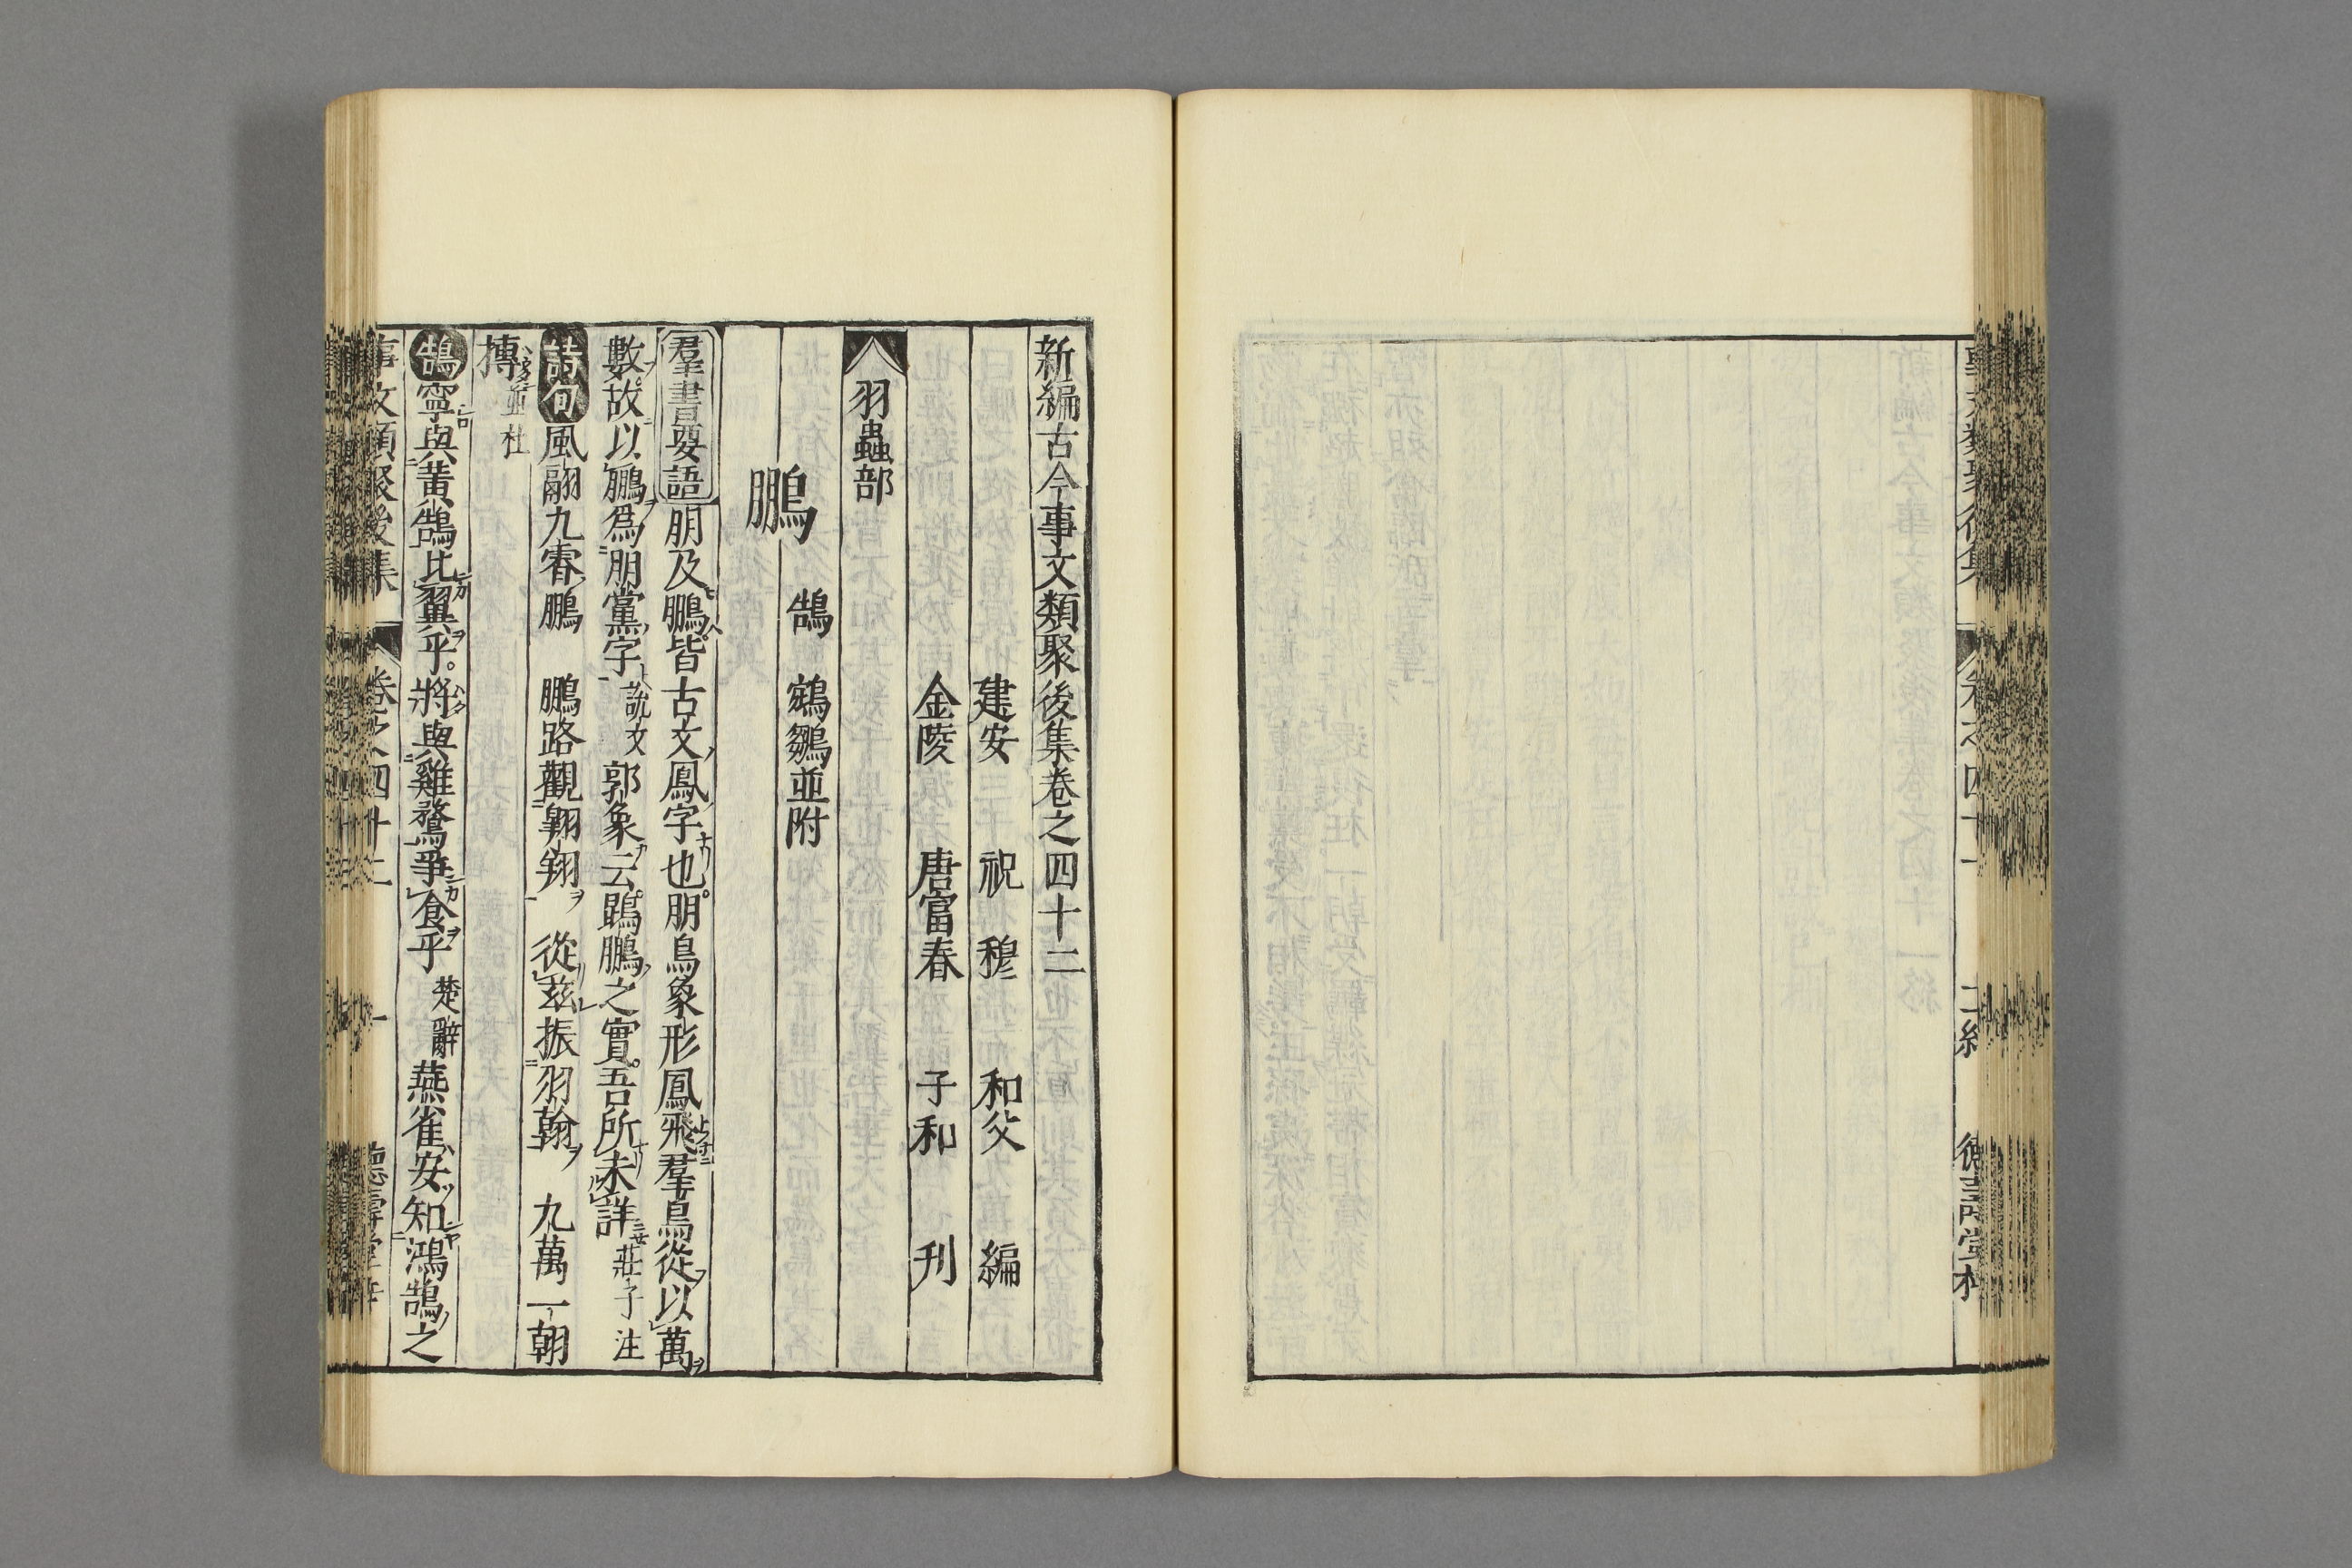 新編古今事文類聚後集卷之四十二
建安　祝　穆　和父　編
金陵　唐富春　子和　刊
羽蟲部
鵬
鵠　鵷鶵並附
羣書要語 朋及鵬皆古文鳳字也。朋鳥象形鳳飛羣鳥從以萬
數故以鵬爲朋黨字 說文 郭象云。鵾鵬之實。吾所未詳 莊子注
詩句 風翮九霄鵬　鵬路觀翱翔　從茲振羽翰　九萬一朝
摶 並杜
鵠 寧與黃鵠比翼乎。將與雞鶩爭食乎 楚辭 燕雀安知鴻鵠之
事文類聚後集　卷之四十二　一　德壽堂梓